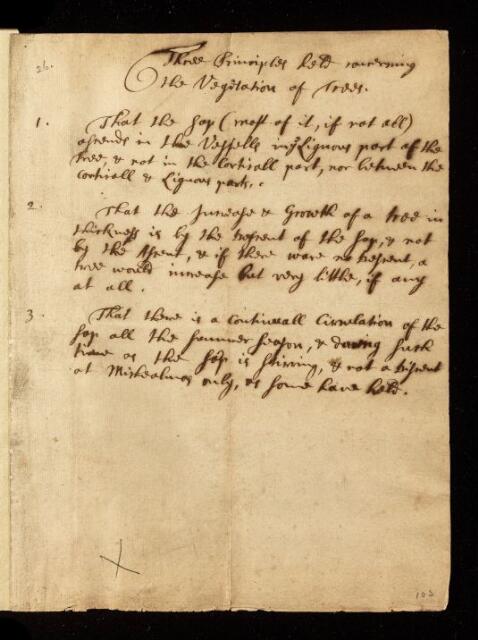 26.
Three Principles held concerning
the Vegitation of Trees.
1. That the Sap (most of it, if not all)
assends in the Vessells in ye Lignous part of the
tree, & not in the Corticall part, nor between the
Corticall & Lignous parts.
2. That the Increase & Growth of a tree in
thickness is by the descent of the Sap, & not
by the Assent, & if there ware no descent, a
tree would increase but very little, if any
at all.
3. That there is a Continuall Circulation of the
Sap all the Summer season, & during such
time as the Sap is stirring, & not a descent
at Mickealmas only, as some have held.
103